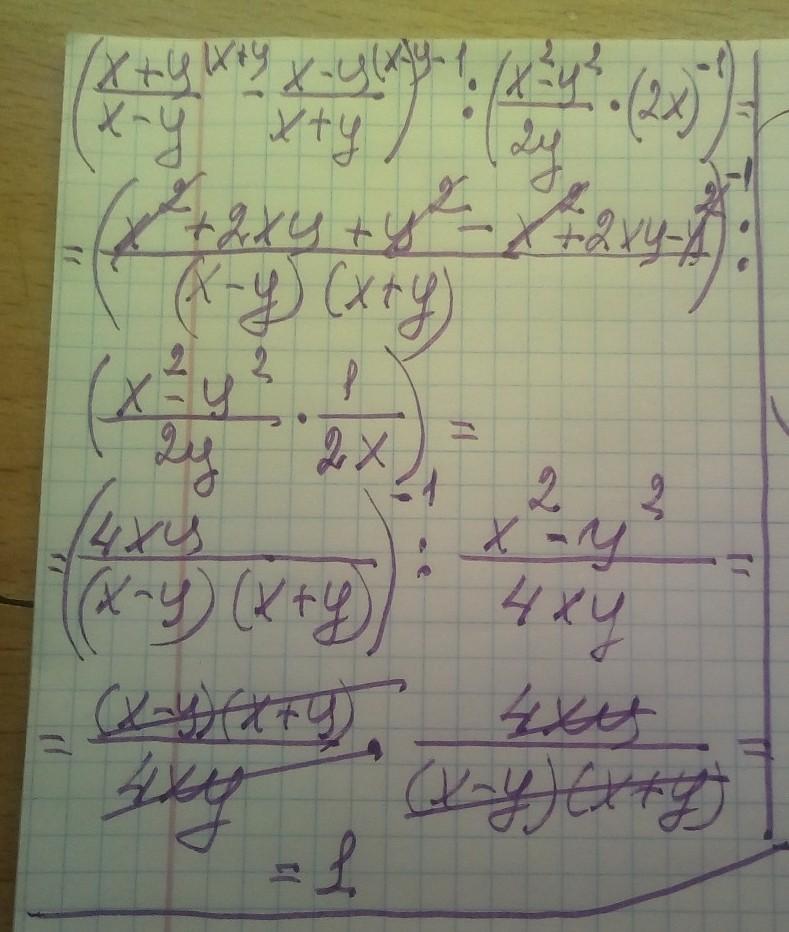 (x+y/x-y ⁽ˣ⁺ʸ - x-y/x+y ⁽ˣ⁻ʸ)⁻¹ : (x²-y²/2y · (2x)⁻¹) =
= (x² + 2xy + y² - x² + 2xy - y²/(x-y)(x+y))⁻¹ :
(x²-y²/2y · 1/2x) =
= (4xy/(x-y)(x+y))⁻¹ : x²-y²/4xy =
= (x-y)(x+y)/4xy · 4xy/(x-y)(x+y) =
= 1